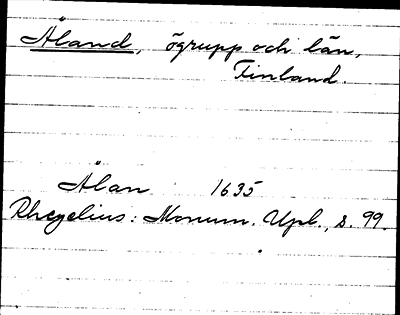 Åland, ögrupp och län,
Finland.
Ålan 1635
Rhezelius: Monum. Upl., s. 99.